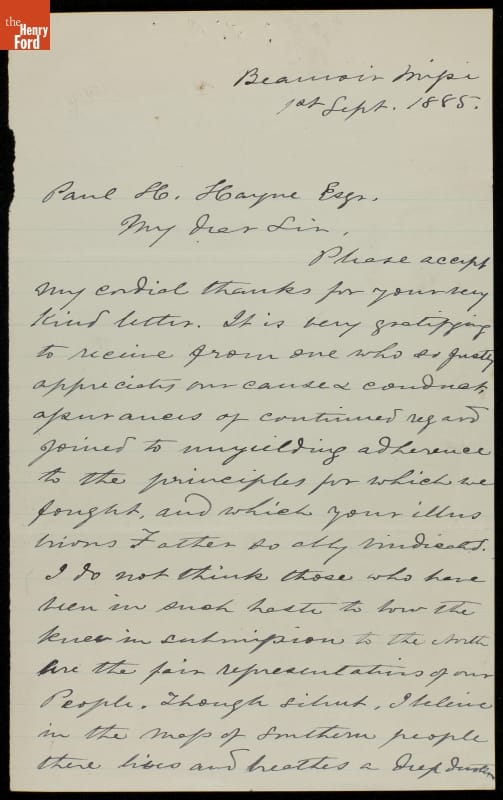 the
Henry
Ford
Beauvoir Missi
1st Sept. 1885.
Paul H. Hayne Esqr.
My dear Sir,
Please accept
my cordial thanks for your very
kind letter. It is very gratifying
to receive from one who so justly
appreciates our cause & conduct,
assurances of continued regard
joined to unyielding adherence
to the principles for which we
fought, and which your illus
trious Father so ably vindicated.
I do not think those who have
been in such haste to bow the
knee in submission to the North
are the fair representatives of our
People. Though silent, I believe
in the mass of Southern people
there lives and breathes a deep devotion